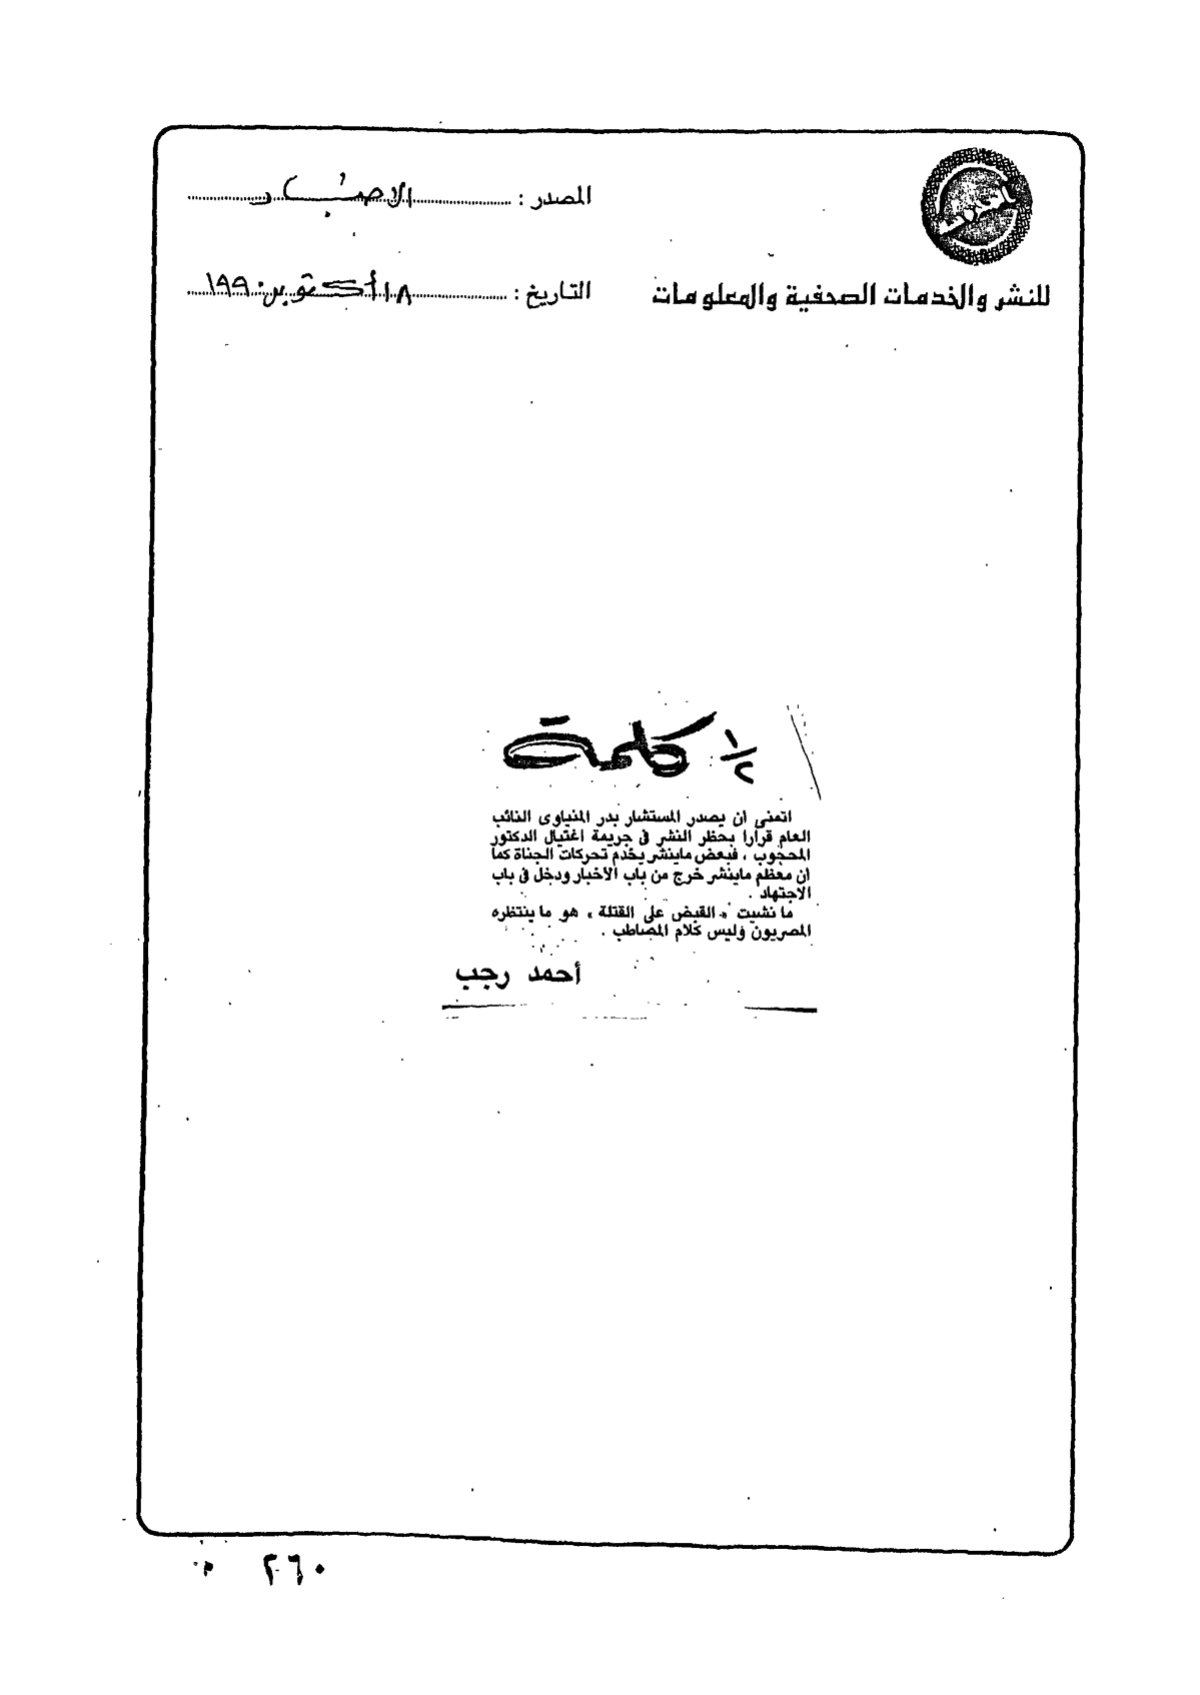 المصدر : الاخبار
للنشر والخدمات الصحفية والمعلومات
التاريخ : ١٨ أكتوبر ١٩٩٠
١/٢ كلمة
اتمنى ان يصدر المستشار بدر المنياوى النائب
العام قرارا بحظر النشر فى جريمة اغتيال الدكتور
المحجوب ، فبعض ماينشر يخدم تحركات الجناة كما
ان معظم ماينشر خرج من باب الأخبار ودخل فى باب
الاجتهاد .
ما نشيت « القبض على القتلة » هو ما ينتظره
المصريون وليس كلام المصاطب .
أحمد رجب
٢٦٠